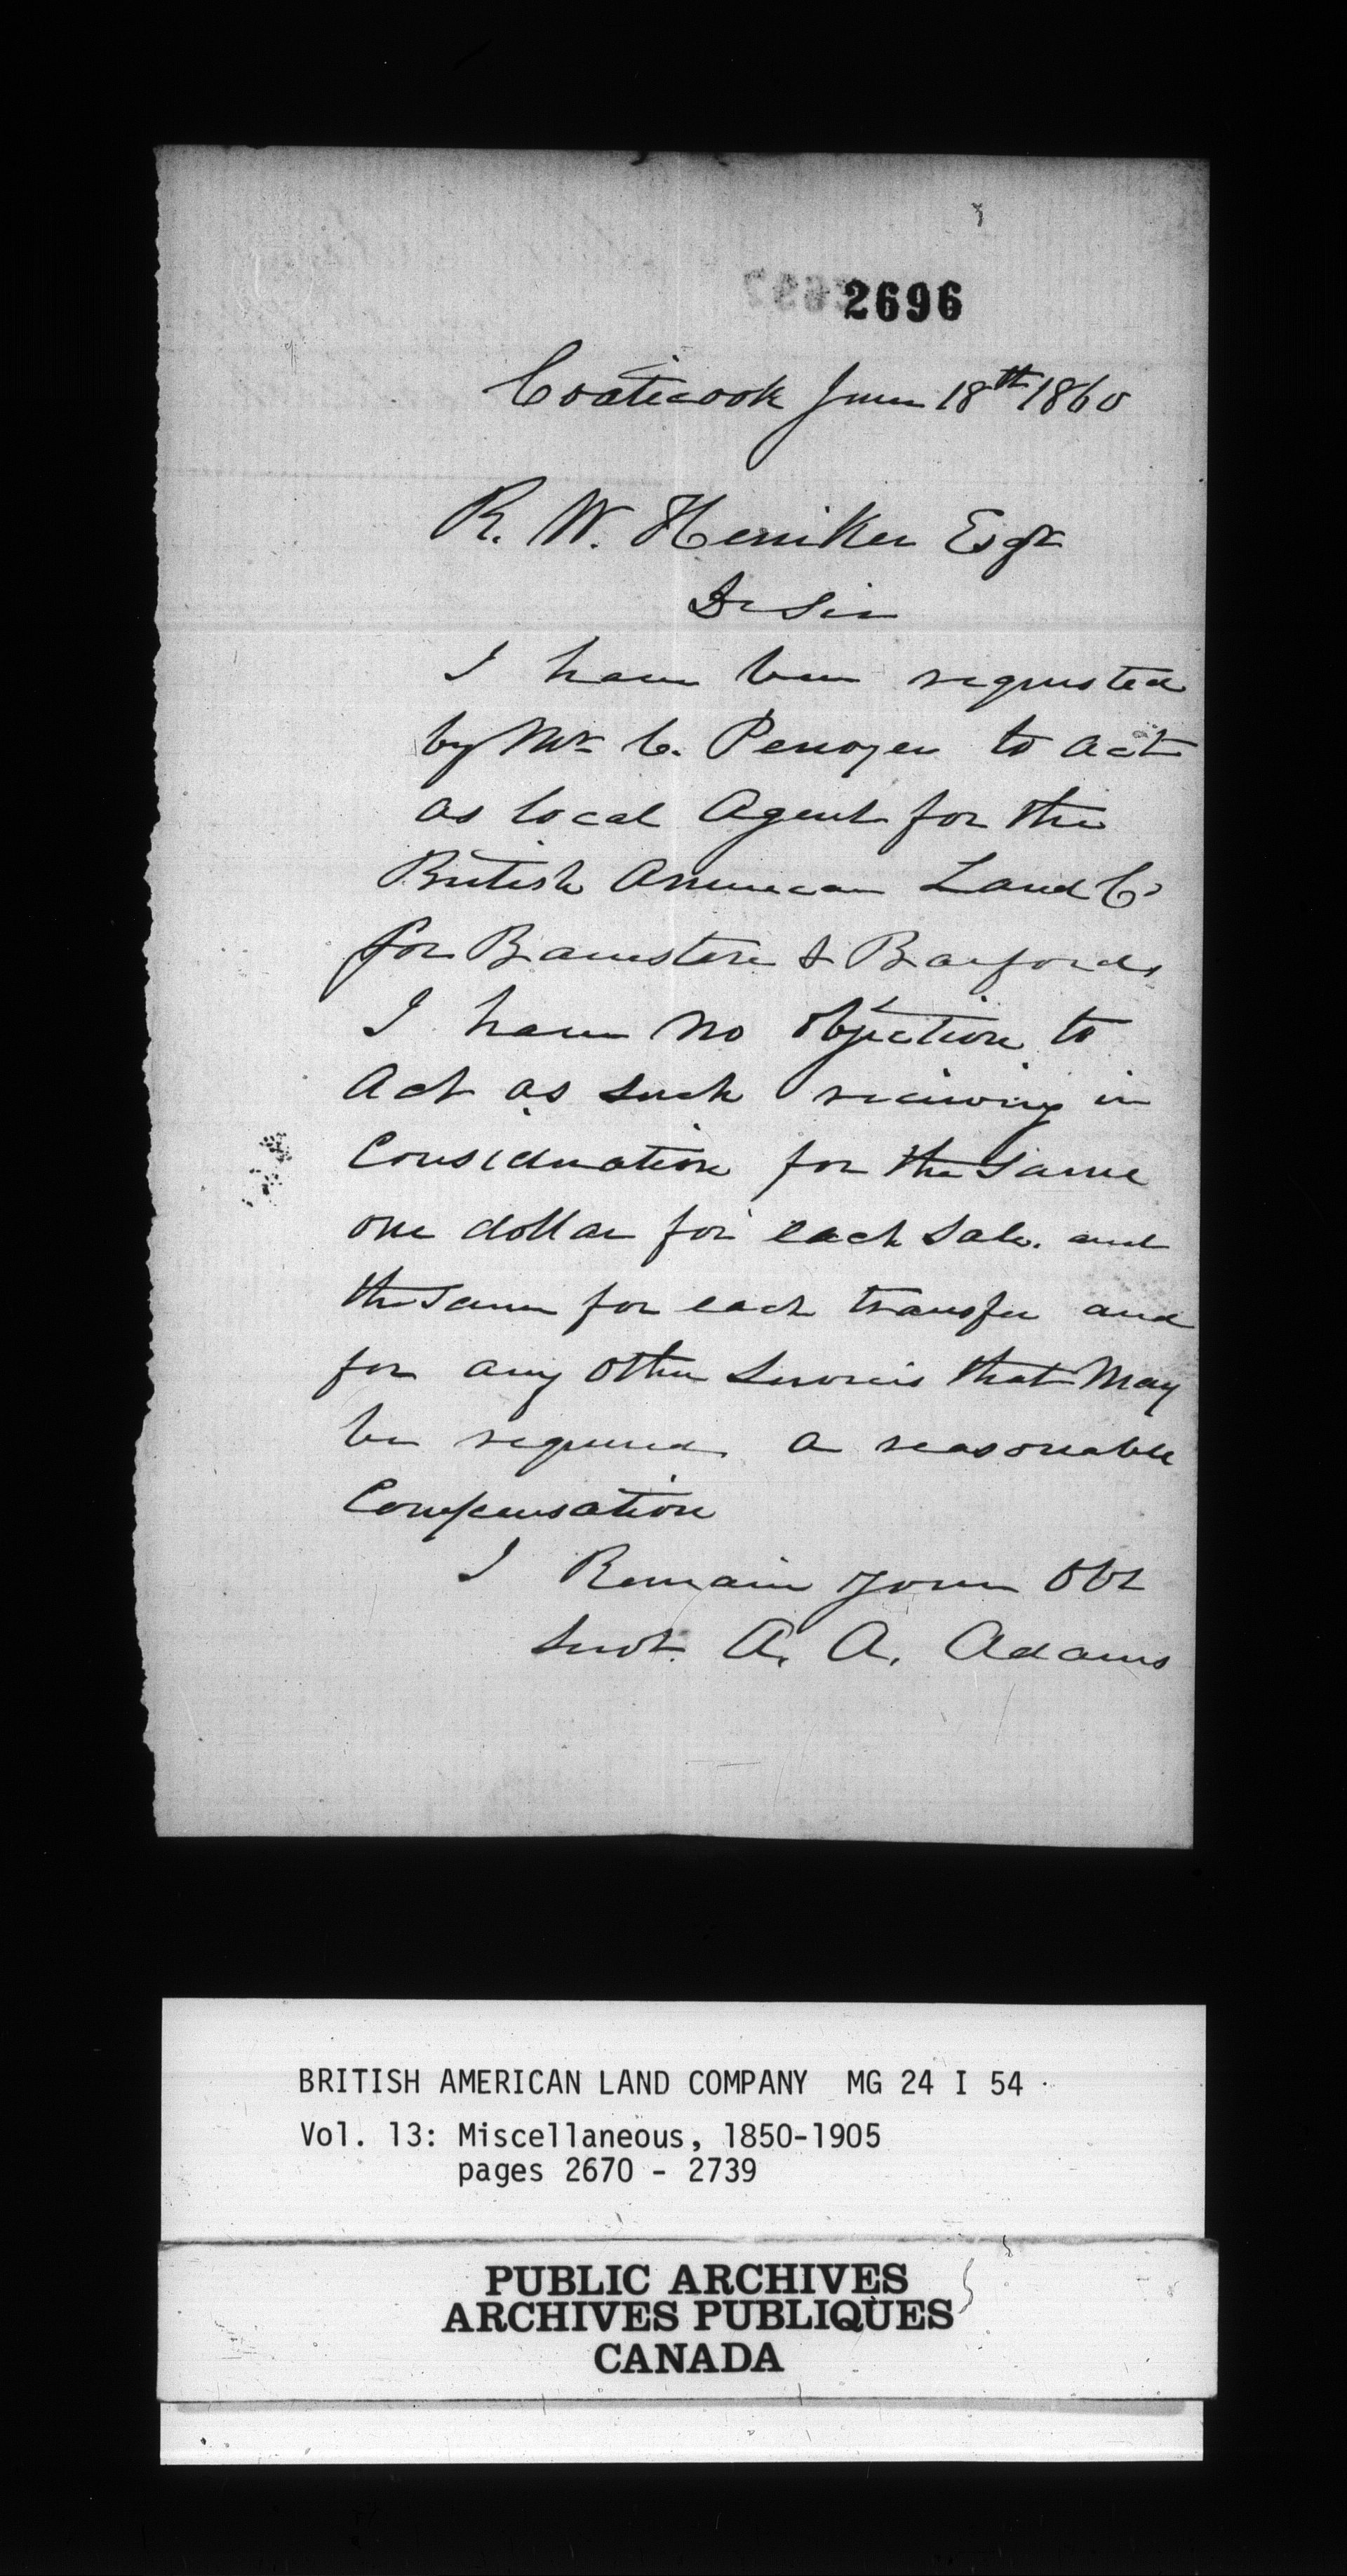 2696
Coaticook June 18th 1860
R. W. Heniker Esqr
Dr Sir
I have been requested
by Mr C. Penoyer to act
as local Agent for the
British American Land Co
for Barnston & Barford
I have no objection to
Act as such reciving in
Consideration for the Same
one dollar for each Sale. and
the Same for each transfer and
for any other Servis that May
be required a reasonable
Compensation
I Remain your Obt
Servt. A. A. Adams
BRITISH AMERICAN LAND COMPANY MG 24 I 54
Vol. 13: Miscellaneous, 1850-1905
pages 2670 - 2739
PUBLIC ARCHIVES
ARCHIVES PUBLIQUES
CANADA